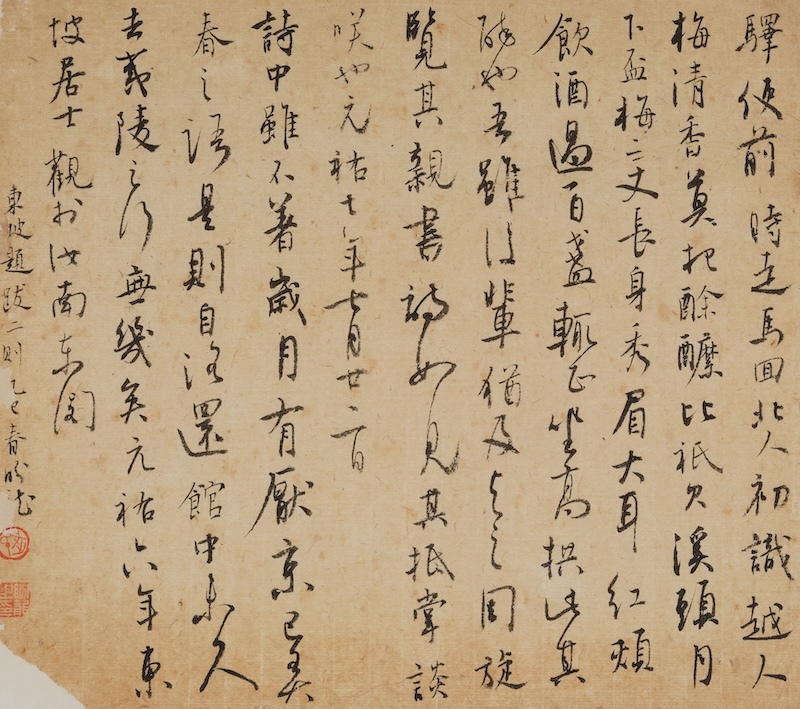 驛使前時走馬回北人初識越人
梅清香莫把酴醾比衹欠溪頭月
下盃梅二丈長身秀眉大耳紅頰
飲酒過百盞輒正坐高拱此其
醉也吾雖後輩猶及與之周旋
覽其親書詩如見其抵掌談
咲也元祐年七月廿二日
詩中雖不著歲月有厭京已
春之語是則自洛還館中未久
去夷陵之行無幾矣元祐六年東
坡居士觀於汝南東閣
東坡題跋二則乙巳春